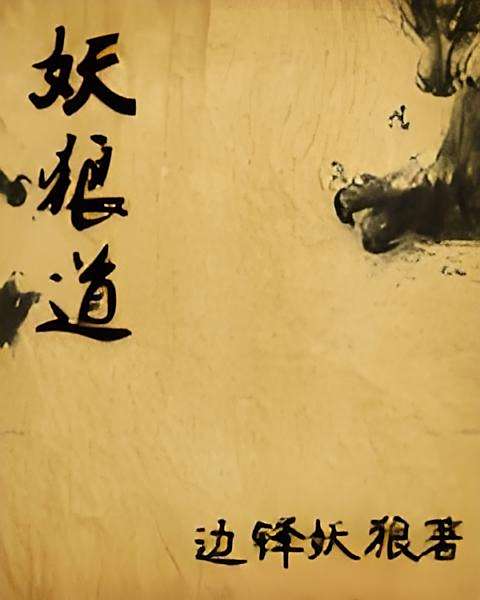 妖狼道
边锋妖狼著